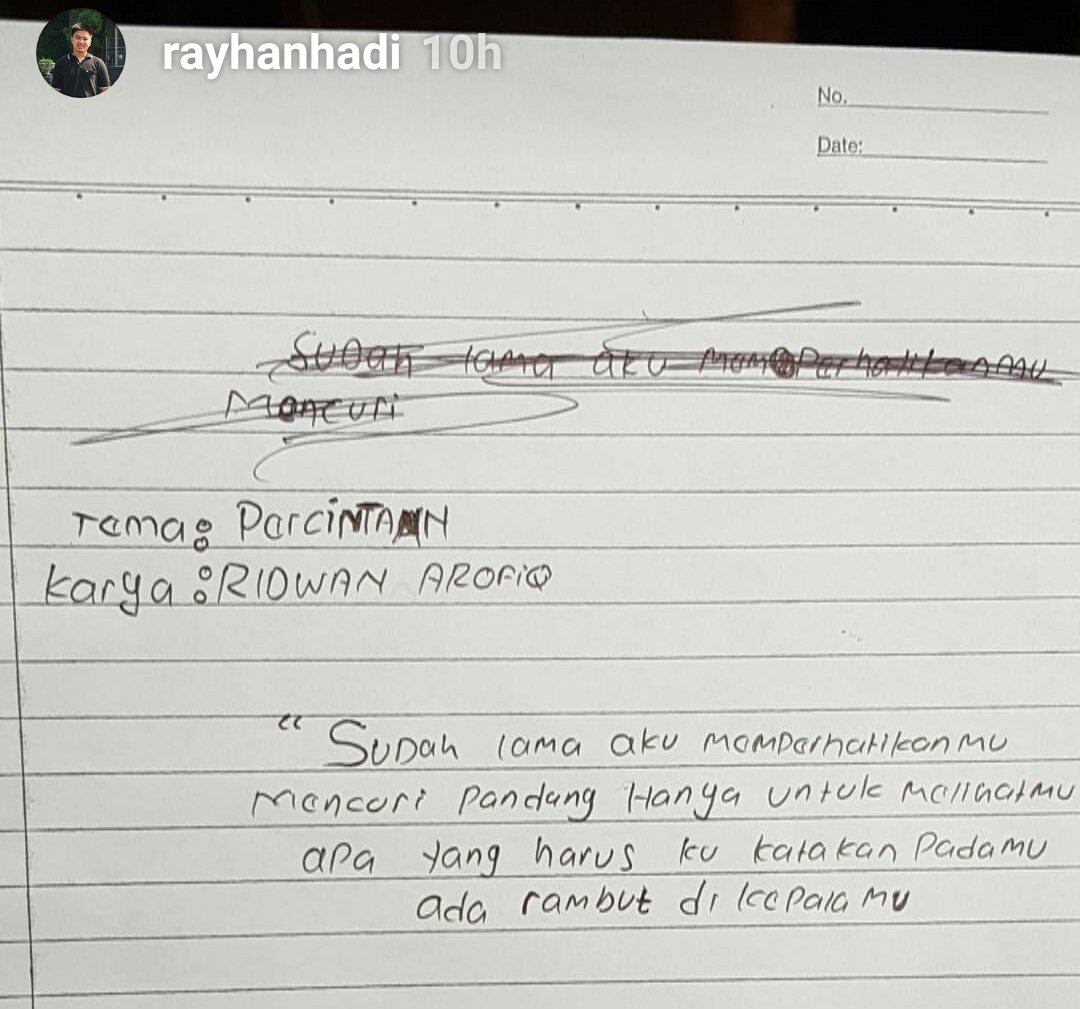 rayhanhadi 10h
No.
Date:
Sudah lama aku memperhatikanmu
Mencuri
Tema: PerciNTAAN
Karya: RIDWAN AROFIQ
"Sudah lama aku memperhatikanmu
Mencuri pandang Hanya untuk melihatmu
apa yang harus ku katakan padamu
ada rambut di kepalamu